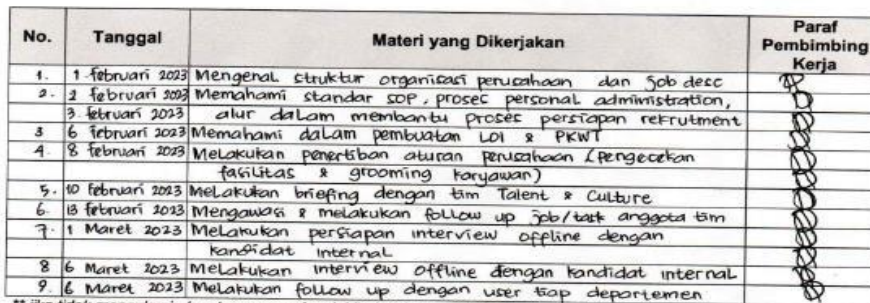 No. Tanggal Materi yang Dikerjakan Paraf Pembimbing Kerja
1. 1 februari 2023 Mengenal struktur organisasi perusahaan dan job desc
2. 2 februari 2023 Memahami standar SOP, proses personal administration,
3 februari 2023 alur dalam membantu proses persiapan rekrutment
3 6 februari 2023 Memahami dalam pembuatan LOI & PKWT
4. 8 februari 2023 Melakukan penertiban aturan perusahaan (pengecekan
fasilitas & grooming karyawan)
5. 10 februari 2023 Melakukan briefing dengan tim Talent & Culture
6. 13 februari 2023 Mengawasi & melakukan follow up job/task anggota tim
7. 1 Maret 2023 Melakukan persiapan interview offline dengan
kandidat internal
8 6 Maret 2023 Melakukan interview offline dengan kandidat internal
9. 6 Maret 2023 Melakukan follow up dengan user tiap departemen